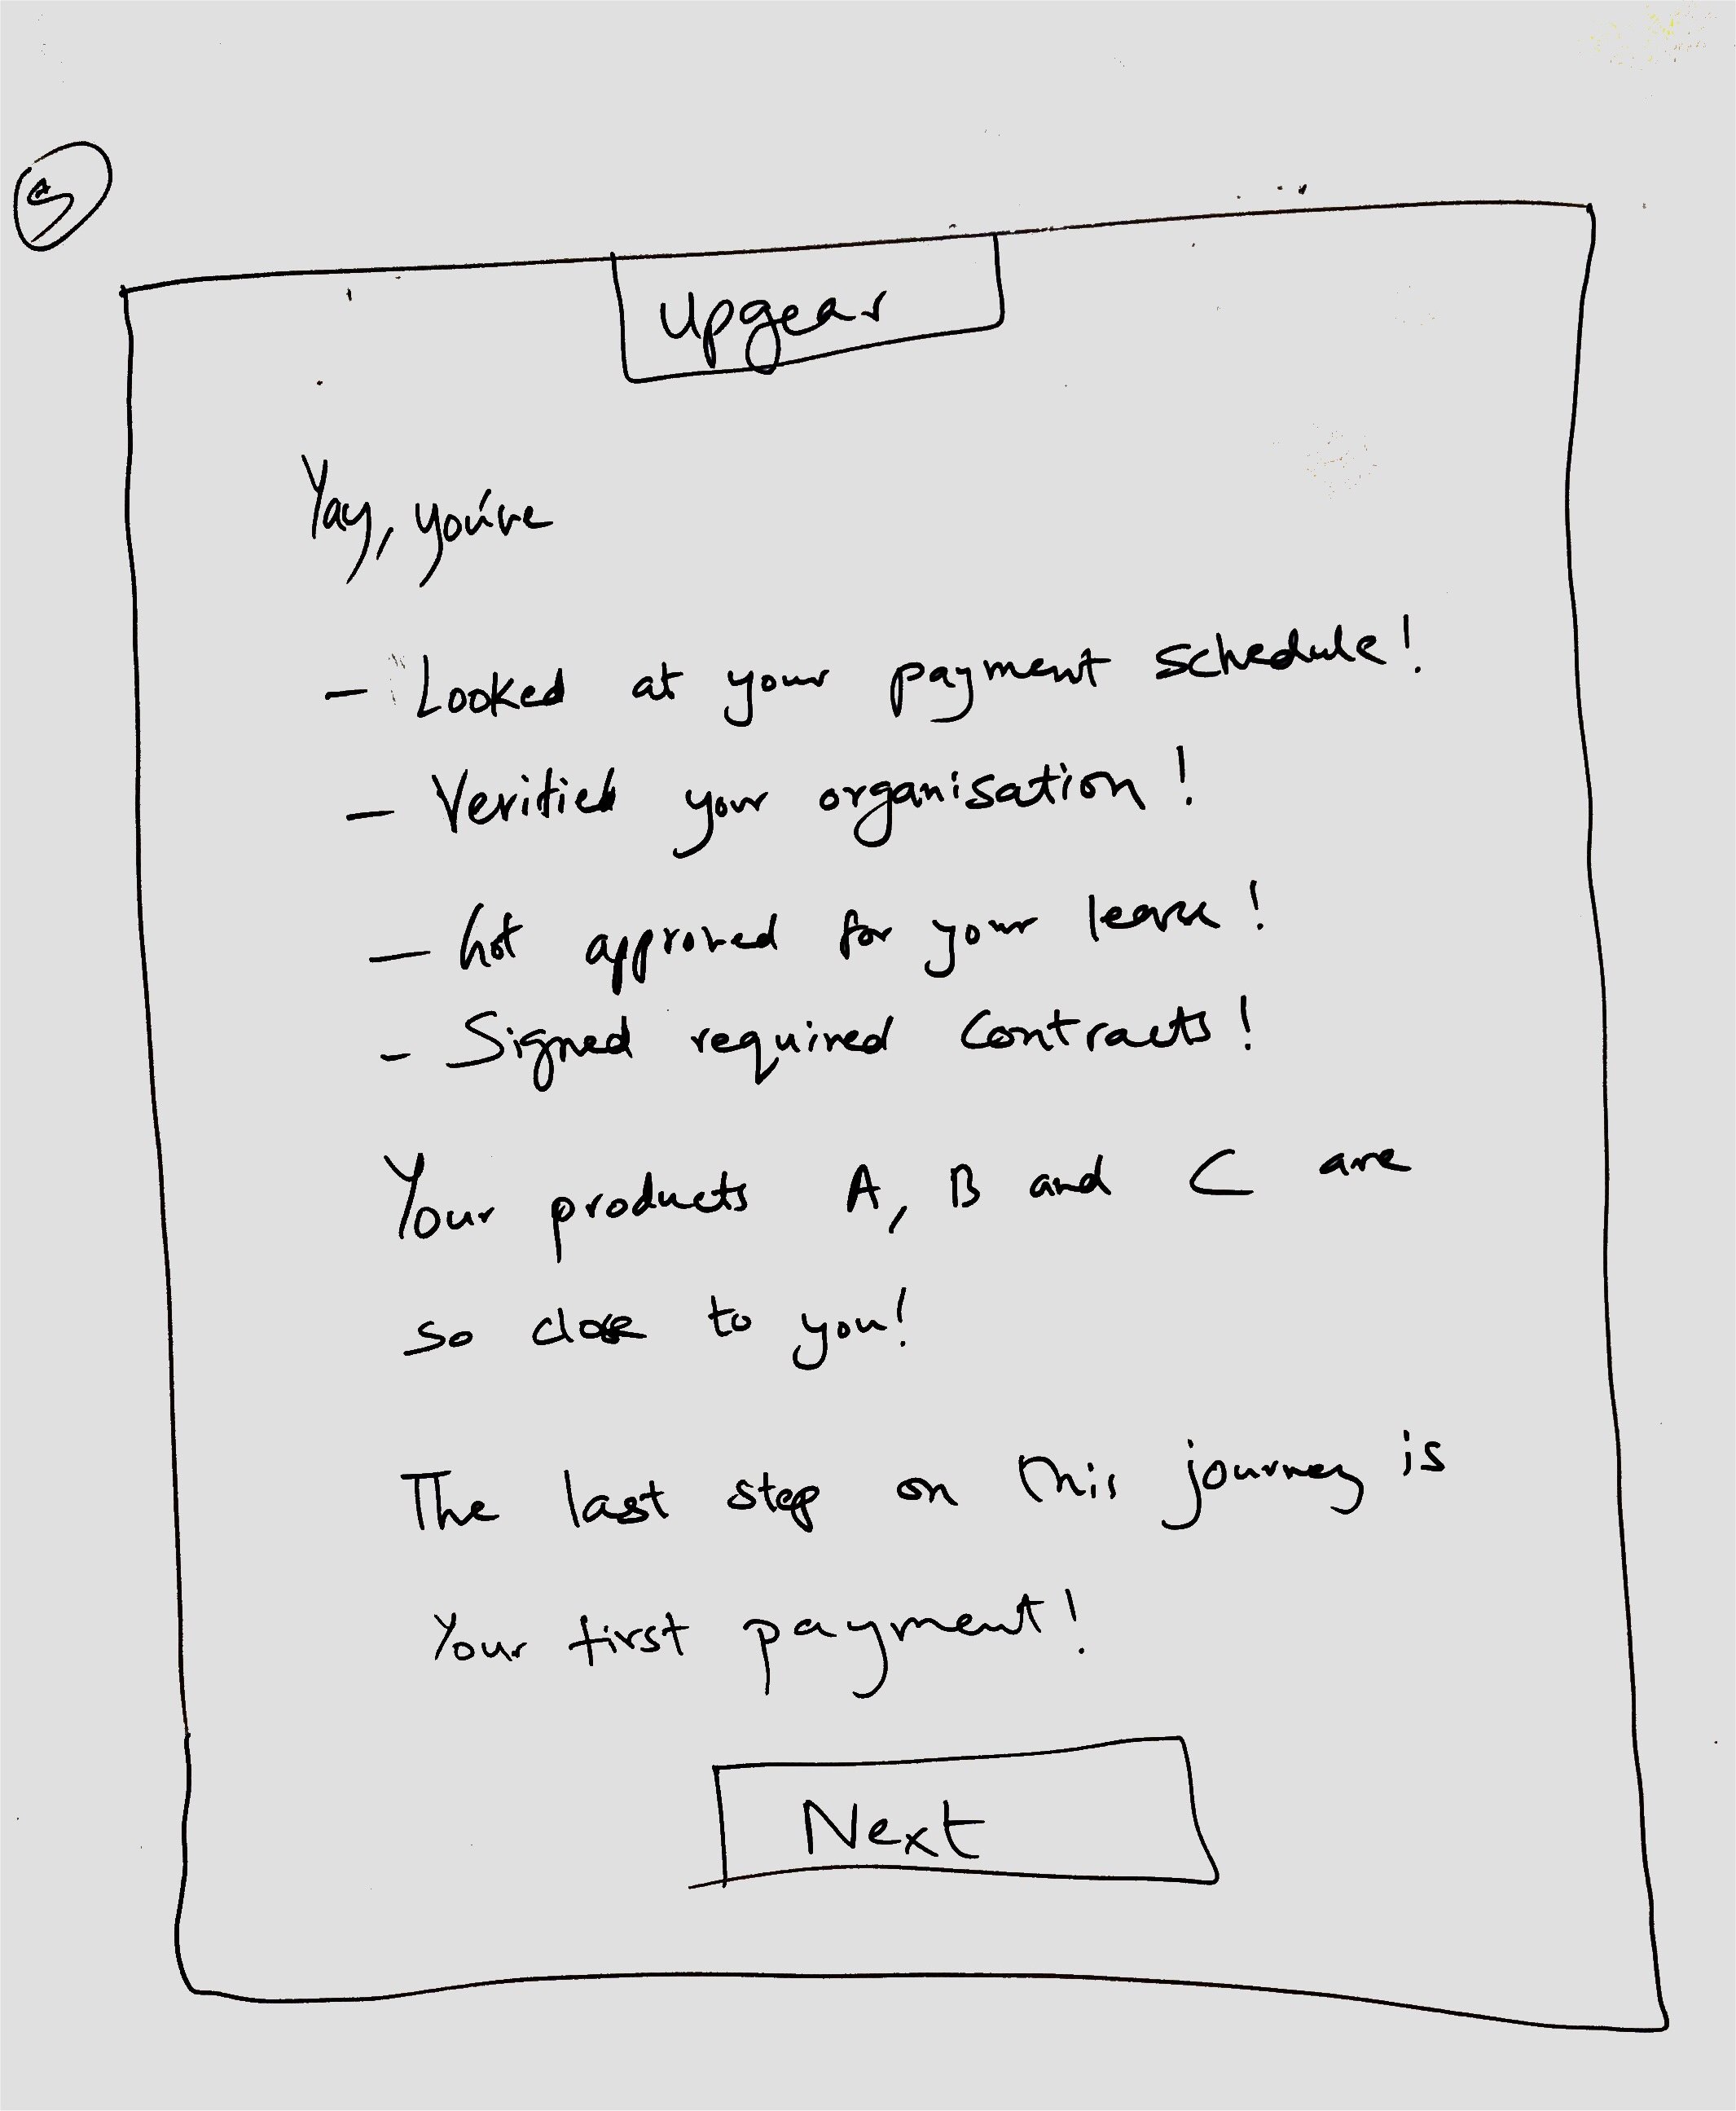 5
Upgear
Yay, you've
- Looked at your payment schedule!
- Verified your organisation!
- Got approved for your lease!
- Signed required contracts!
Your products A, B and C are
so close to you!
The last step on this journey is
Your first payment!
Next